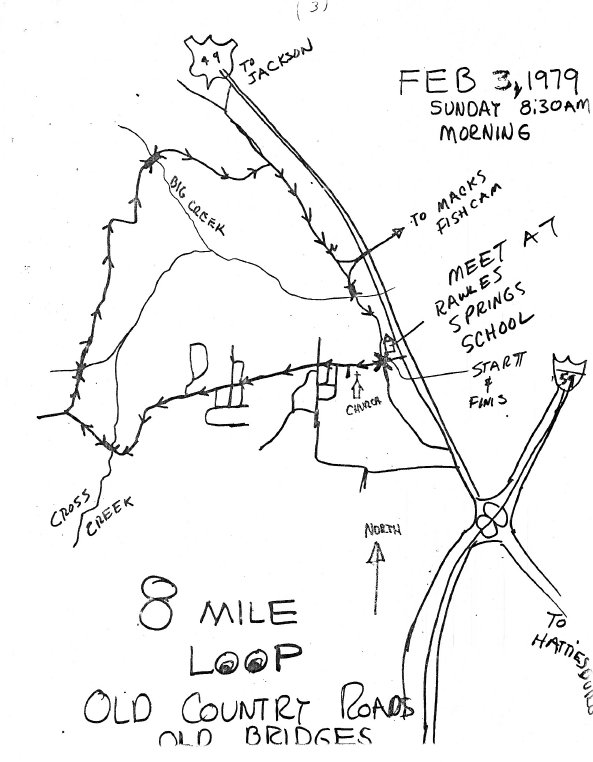 (3)
49
TO
JACKSON
FEB 3, 1979
SUNDAY 8:30AM
MORNING
BIG CREEK
TO MACKS
FISH CAM
MEET AT
RAWLES
SPRINGS
SCHOOL
START
&
FINIS
59
CHURCH
CROSS
CREEK
NORTH
TO
HATTIESBURG
8 MILE
LOOP
OLD COUNTRY ROADS
OLD BRIDGES